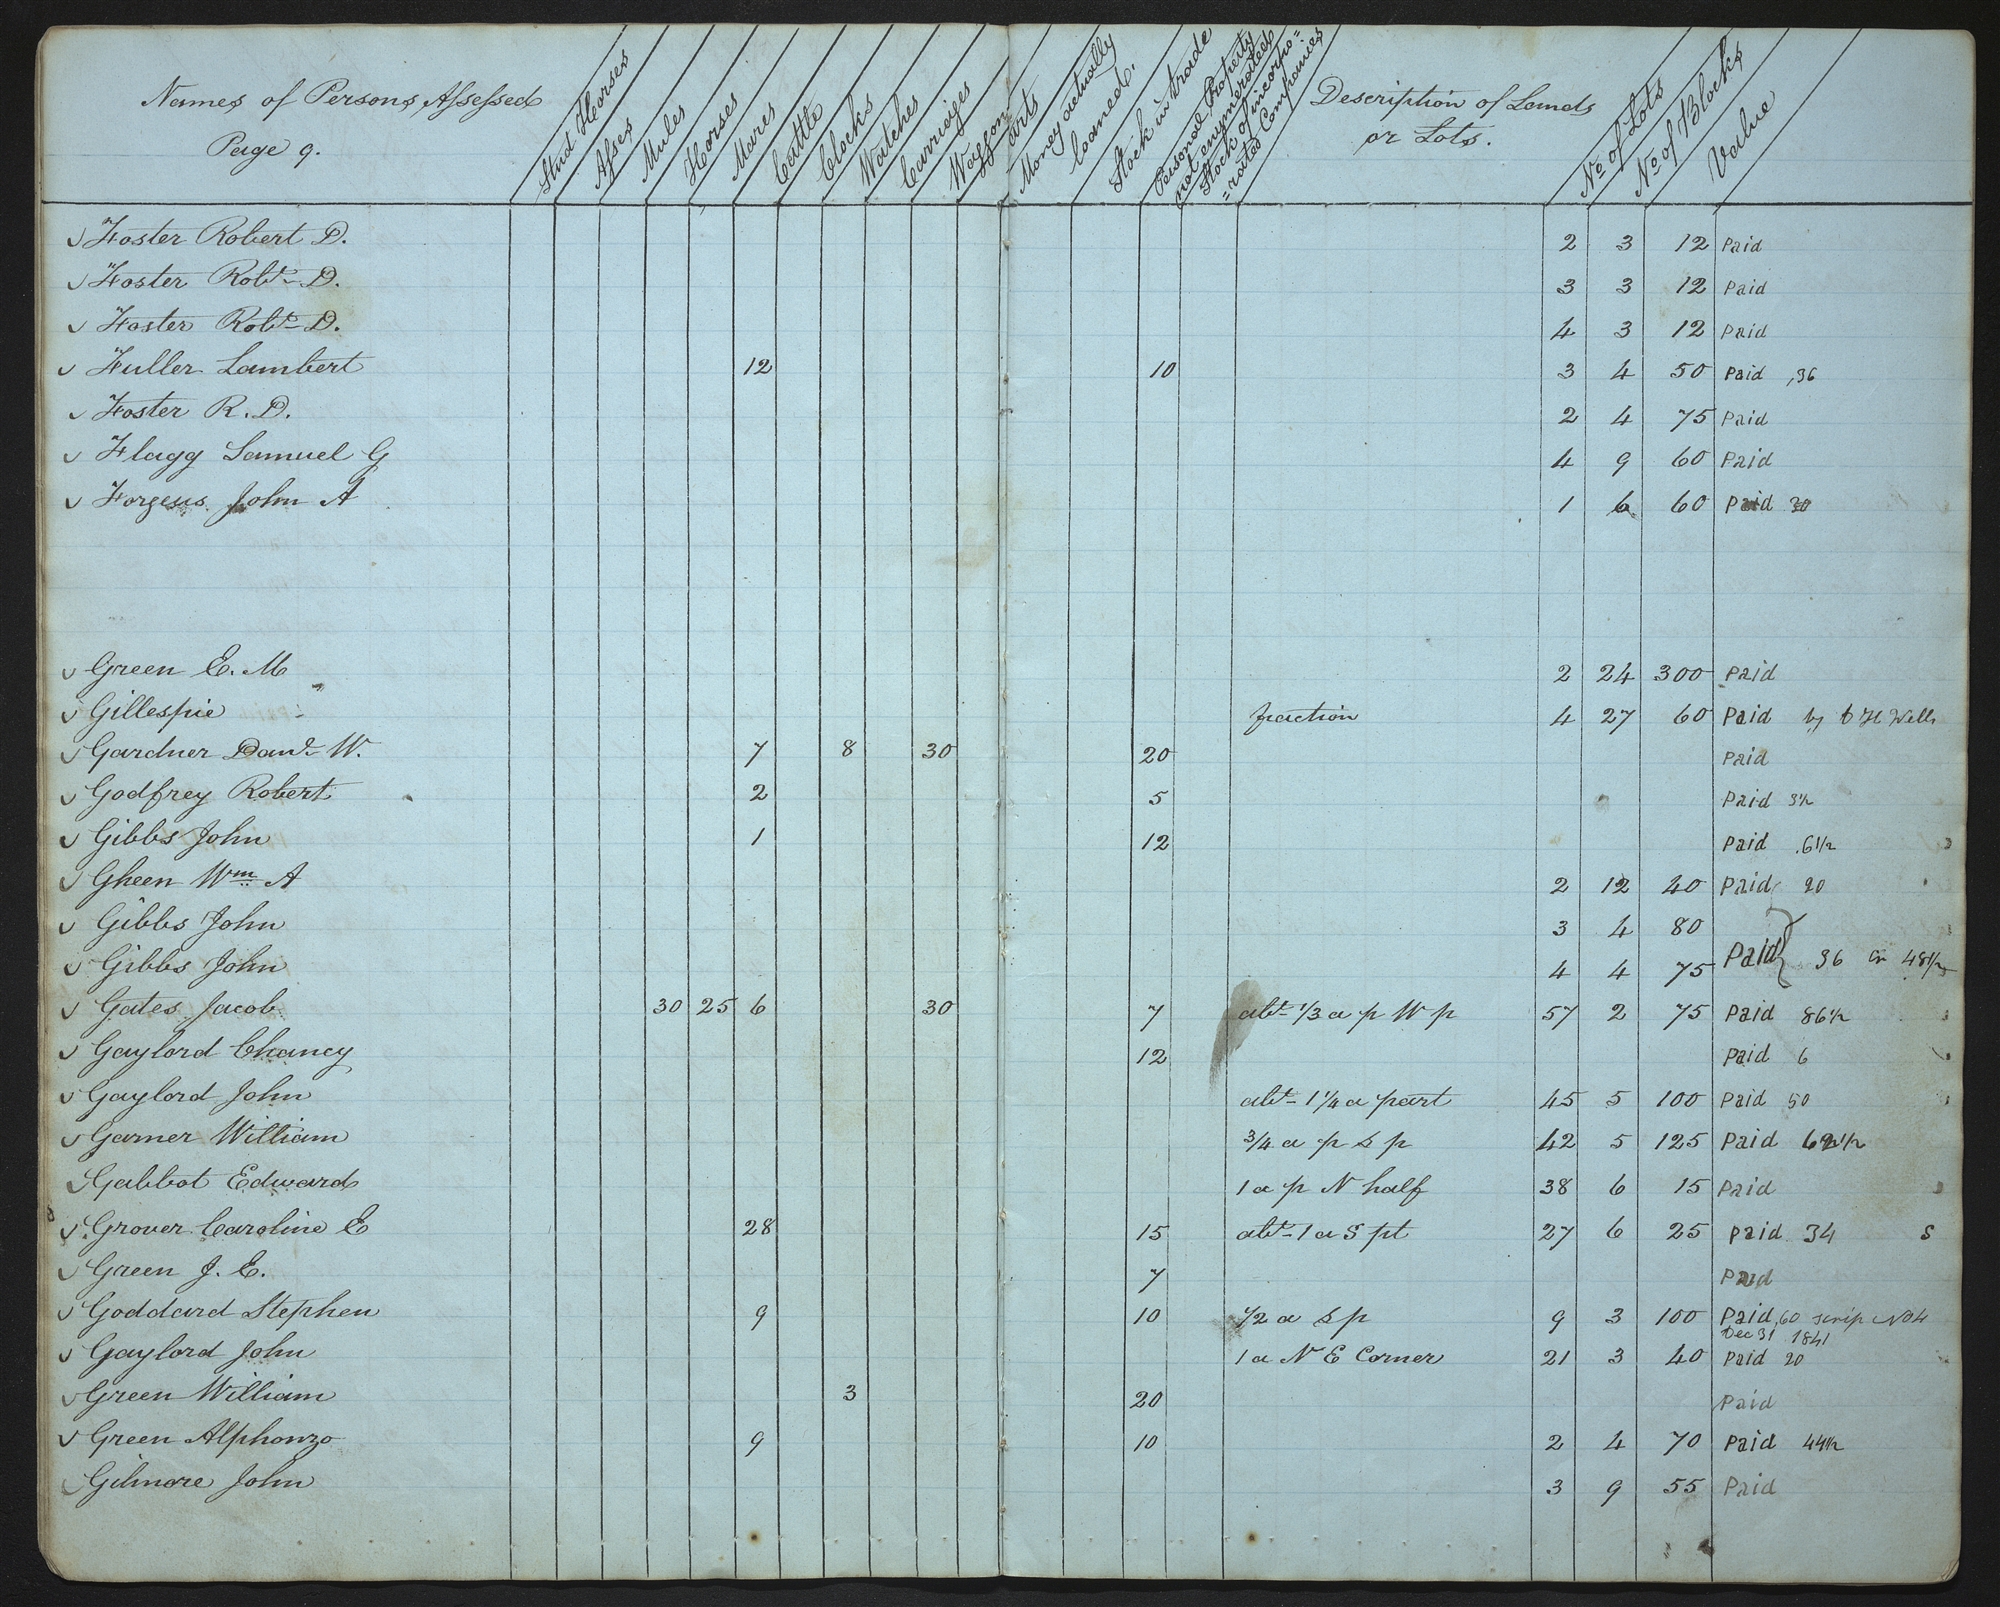 Names of Persons Assessed
Page 9.
Stud Horses
Asses
Mules
Horses
Mares
Cattle
Clocks
Watches
Carriages
Waggon
Carts
Money actually
loaned.
Stock in trade
Personal Property
not enumerated
Stock of incorpo=
=rated Companies
Description of Lands
or Lots.
No of Lots
No of Blocks
Value
Foster Robert D. 2 3 12 Paid
Foster Robt D. 3 3 12 Paid
Foster Robt D. 4 3 12 Paid
Fuller Lambert 12 10 3 4 50 Paid ,36
Foster R. D. 2 4 75 Paid
Flagg Samuel G 4 9 60 Paid
Forgeus John A 1 6 60 Paid 30
Green E. M 2 24 300 Paid
Gillespie fraction 4 27 60 Paid by D H Wells
Gardner Danl W. 7 8 30 20 Paid
Godfrey Robert 2 5 Paid 3½
Gibbs John 1 12 Paid .6½
Gheen Wm A 2 12 40 Paid 20
Gibbs John 3 4 80
Gibbs John 4 4 75 Paid 36 Cr 48½
Gates Jacob 30 25 6 30 7 abt 1/3 a p W p 57 2 75 Paid 86½
Gaylord Chancy 12 Paid 6
Gaylord John abt 1¼ a part 45 5 100 Paid 50
Garner William ¾ a p S p 42 5 125 Paid 62½
Gabbot Edward 1 a p N half 38 6 15 Paid
Grover Caroline E 28 15 abt 1 a S pt 27 6 25 Paid 34 S
Green J. E. 7 Paid
Goddard Stephen 9 10 ½ a S p 9 3 100 Paid ,60 scrip No 4
Dec 31 1841
Gaylord John 1 a N E Corner 21 3 40 Paid 20
Green William 3 20 Paid
Green Alphonzo 9 10 2 4 70 Paid 44½
Gilmore John 3 9 55 Paid